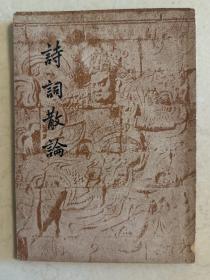 詩詞散論